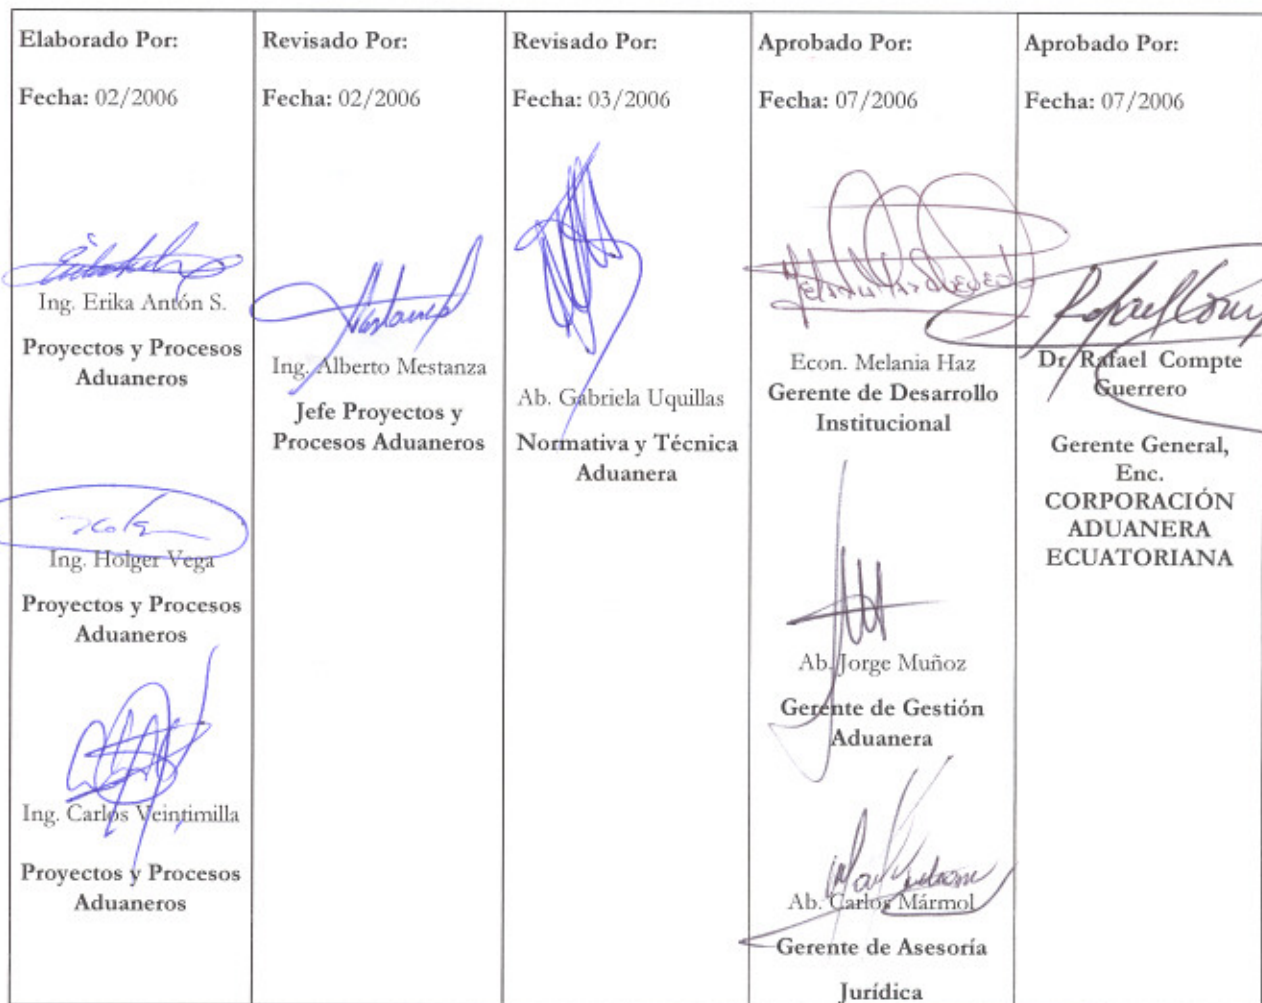 Elaborado Por:
Fecha: 02/2006
Ing. Erika Antón S.
Proyectos y Procesos
Aduaneros
Ing. Holger Vega
Proyectos y Procesos
Aduaneros
Ing. Carlos Veintimilla
Proyectos y Procesos
Aduaneros
Revisado Por:
Fecha: 02/2006
Ing. Alberto Mestanza
Jefe Proyectos y
Procesos Aduaneros
Revisado Por:
Fecha: 03/2006
Ab. Gabriela Uquillas
Normativa y Técnica
Aduanera
Aprobado Por:
Fecha: 07/2006
Econ. Melania Haz
Gerente de Desarrollo
Institucional
Ab. Jorge Muñoz
Gerente de Gestión
Aduanera
Ab. Carlos Mármol
Gerente de Asesoría
Jurídica
Aprobado Por:
Fecha: 07/2006
Dr. Rafael Compte
Guerrero
Gerente General,
Enc.
CORPORACIÓN
ADUANERA
ECUATORIANA